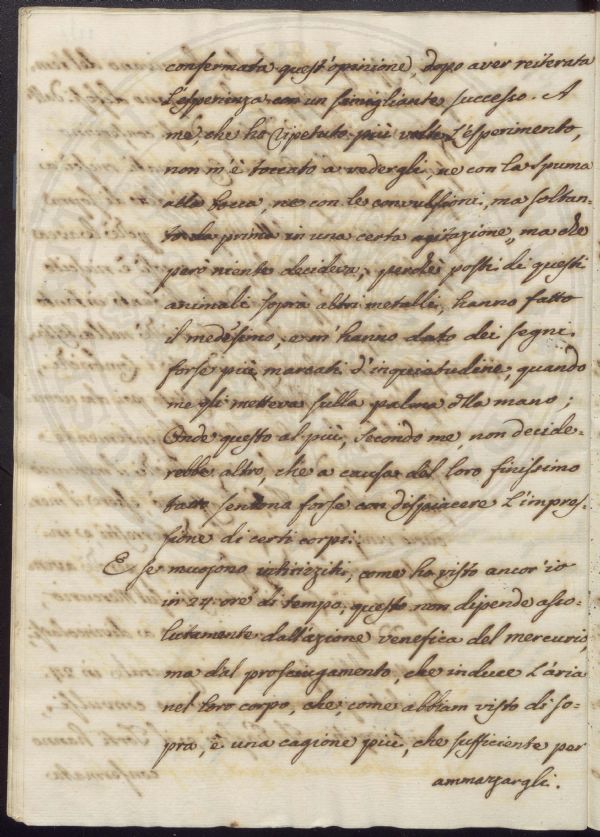 confermata quest'opinione, dopo aver reiterata
l'esperienza con un simigliante successo. A
me, che ho ripetuto più volte l'esperimento,
non m'è toccato a vedergli, ne con la spuma
alla bocca, ne con le convulsioni, ma soltan=
to da prima in una certa agitazione, ma che
però niente decideva, perchè posti di questi
animali sopra altri metalli, hanno fatto
il medesimo, e m'hanno dato dei segni
forse più marcati d'inquietudine, quando
me gli metteva sulla palma della mano;
Onde questo al più, secondo me, non decide=
rebbe altro, che a causa del loro finissimo
tatto sentono forse con dispiacere l'impres=
sione di certi corpi.
E se muojono intirizziti, come ho visto ancor'io
in 24 ore di tempo, questo non dipende asso=
lutamente dall'azione venefica del mercurio,
ma dal prosciugamento, che induce l'aria
nel loro corpo, che, come abbiam visto di so=
pra, è una cagione più, che sufficiente per
ammazzargli.